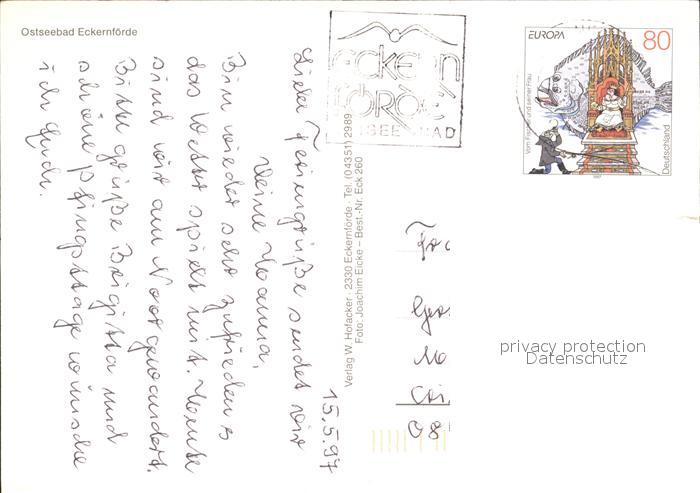 Ostseebad Eckernförde
15.5.97
Liebe Feriengrüße sendet Dir
Deine Hanna,
Bin wieder sehr zufrieden,
das Wetter spielt mit. Heute
sind wir am Noor gewandert.
Bitte grüße Brigitta und
schöne Pfingsttage wünsche
ich Euch.
Verlag W. Hofacker · 2330 Eckernförde · Tel. (0 43 51) 2989
Foto: Joachim Eicke – Best.-Nr. Eck 260
ECKERN
FÖRDE
OSTSEEBAD
EUROPA
80
Vom Fischer und seiner Frau
Deutschland
1997
privacy protection
Datenschutz